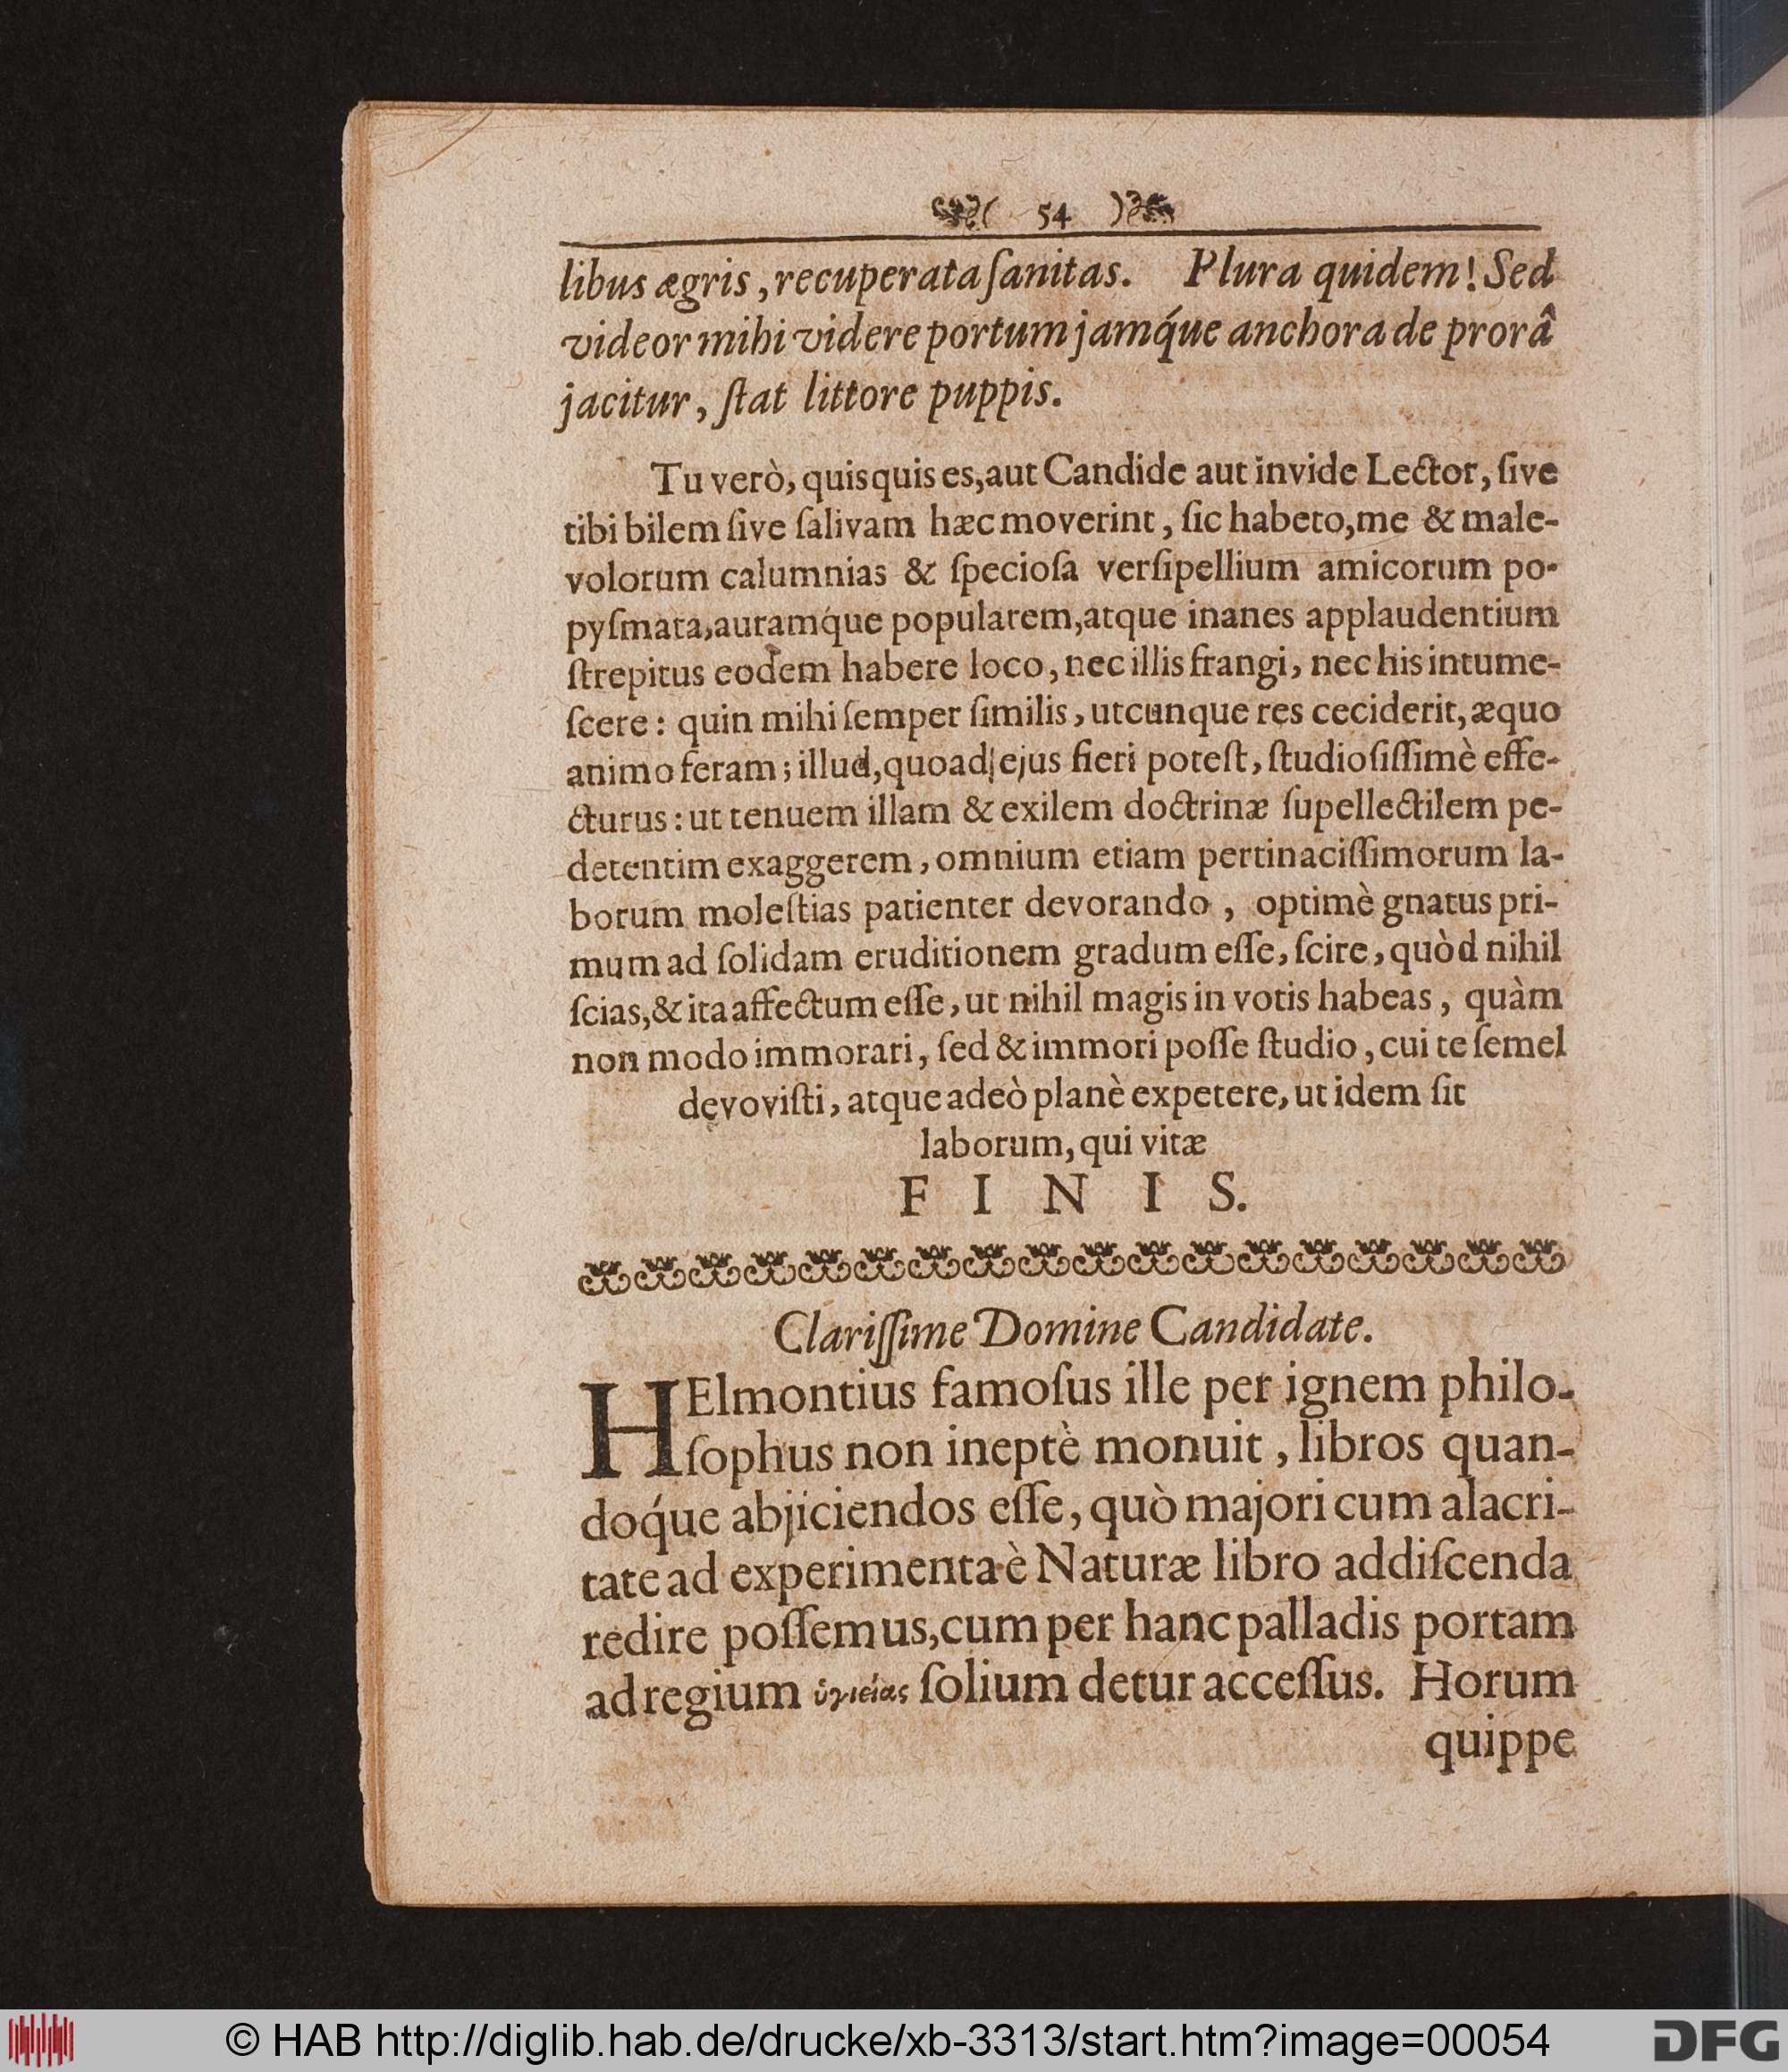 ( 54 )
libus ægris, recuperata ſanitas. Plura quidem! Sed
videor mihi videre portum jamq́ue anchora de prorâ
jacitur, ſtat littore puppis.
Tu verò, quisquis es, aut Candide aut invide Lector, ſive
tibi bilem ſive ſalivam hæc moverint, ſic habeto, me & male-
volorum calumnias & ſpecioſa verſipellium amicorum po-
pyſmata, auramq́ue popularem, atque inanes applaudentium
ſtrepitus eodem habere loco, nec illis frangi, nec his intume-
ſcere: quin mihi ſemper ſimilis, utcunque res ceciderit, æquo
animo feram; illud, quoad ejus fieri poteſt, ſtudioſiſſimè effe-
cturus: ut tenuem illam & exilem doctrinæ ſupellectilem pe-
detentim exaggerem, omnium etiam pertinaciſſimorum la-
borum moleſtias patienter devorando, optimè gnatus pri-
mum ad ſolidam eruditionem gradum eſſe, ſcire, quòd nihil
ſcias, & ita affectum eſſe, ut nihil magis in votis habeas, quàm
non modo immorari, ſed & immori poſſe ſtudio, cui te ſemel
devoviſti, atque adeò planè expetere, ut idem ſit
laborum, qui vitæ
F I N I S.
Clariſſime Domine Candidate.
HElmontius famoſus ille per ignem philo-
ſophus non ineptè monuit, libros quan-
doq́ue abjiciendos eſſe, quò majori cum alacri-
tate ad experimenta è Naturæ libro addiſcenda
redire poſſemus, cum per hanc palladis portam
ad regium ὑγιείας ſolium detur acceſſus. Horum
quippe
© HAB http://diglib.hab.de/drucke/xb-3313/start.htm?image=00054
DFG